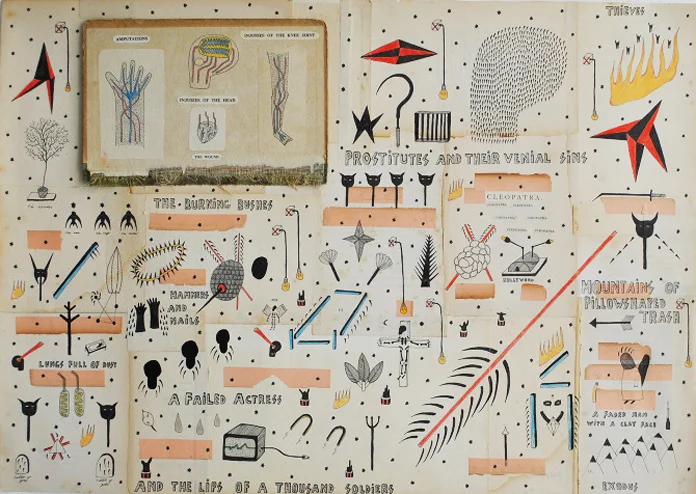 THIEVES
AMPUTATIONS
INJURIES OF THE KNEE JOINT
INJURIES OF THE HEAD
THE WOUND
PROSTITUTES AND THEIR VENIAL SINS
THE BURNING BUSHES
CLEOPATRA
HOLLYWOOD
HAMMERS
AND
NAILS
MOUNTAINS OF
PILLOWSHAPED
TRASH
LUNGS FULL OF DUST
A FAILED ACTRESS
A FADED MAN
WITH A CLAY FACE
AND THE LIPS OF A THOUSAND SOLDIERS
EXODUS